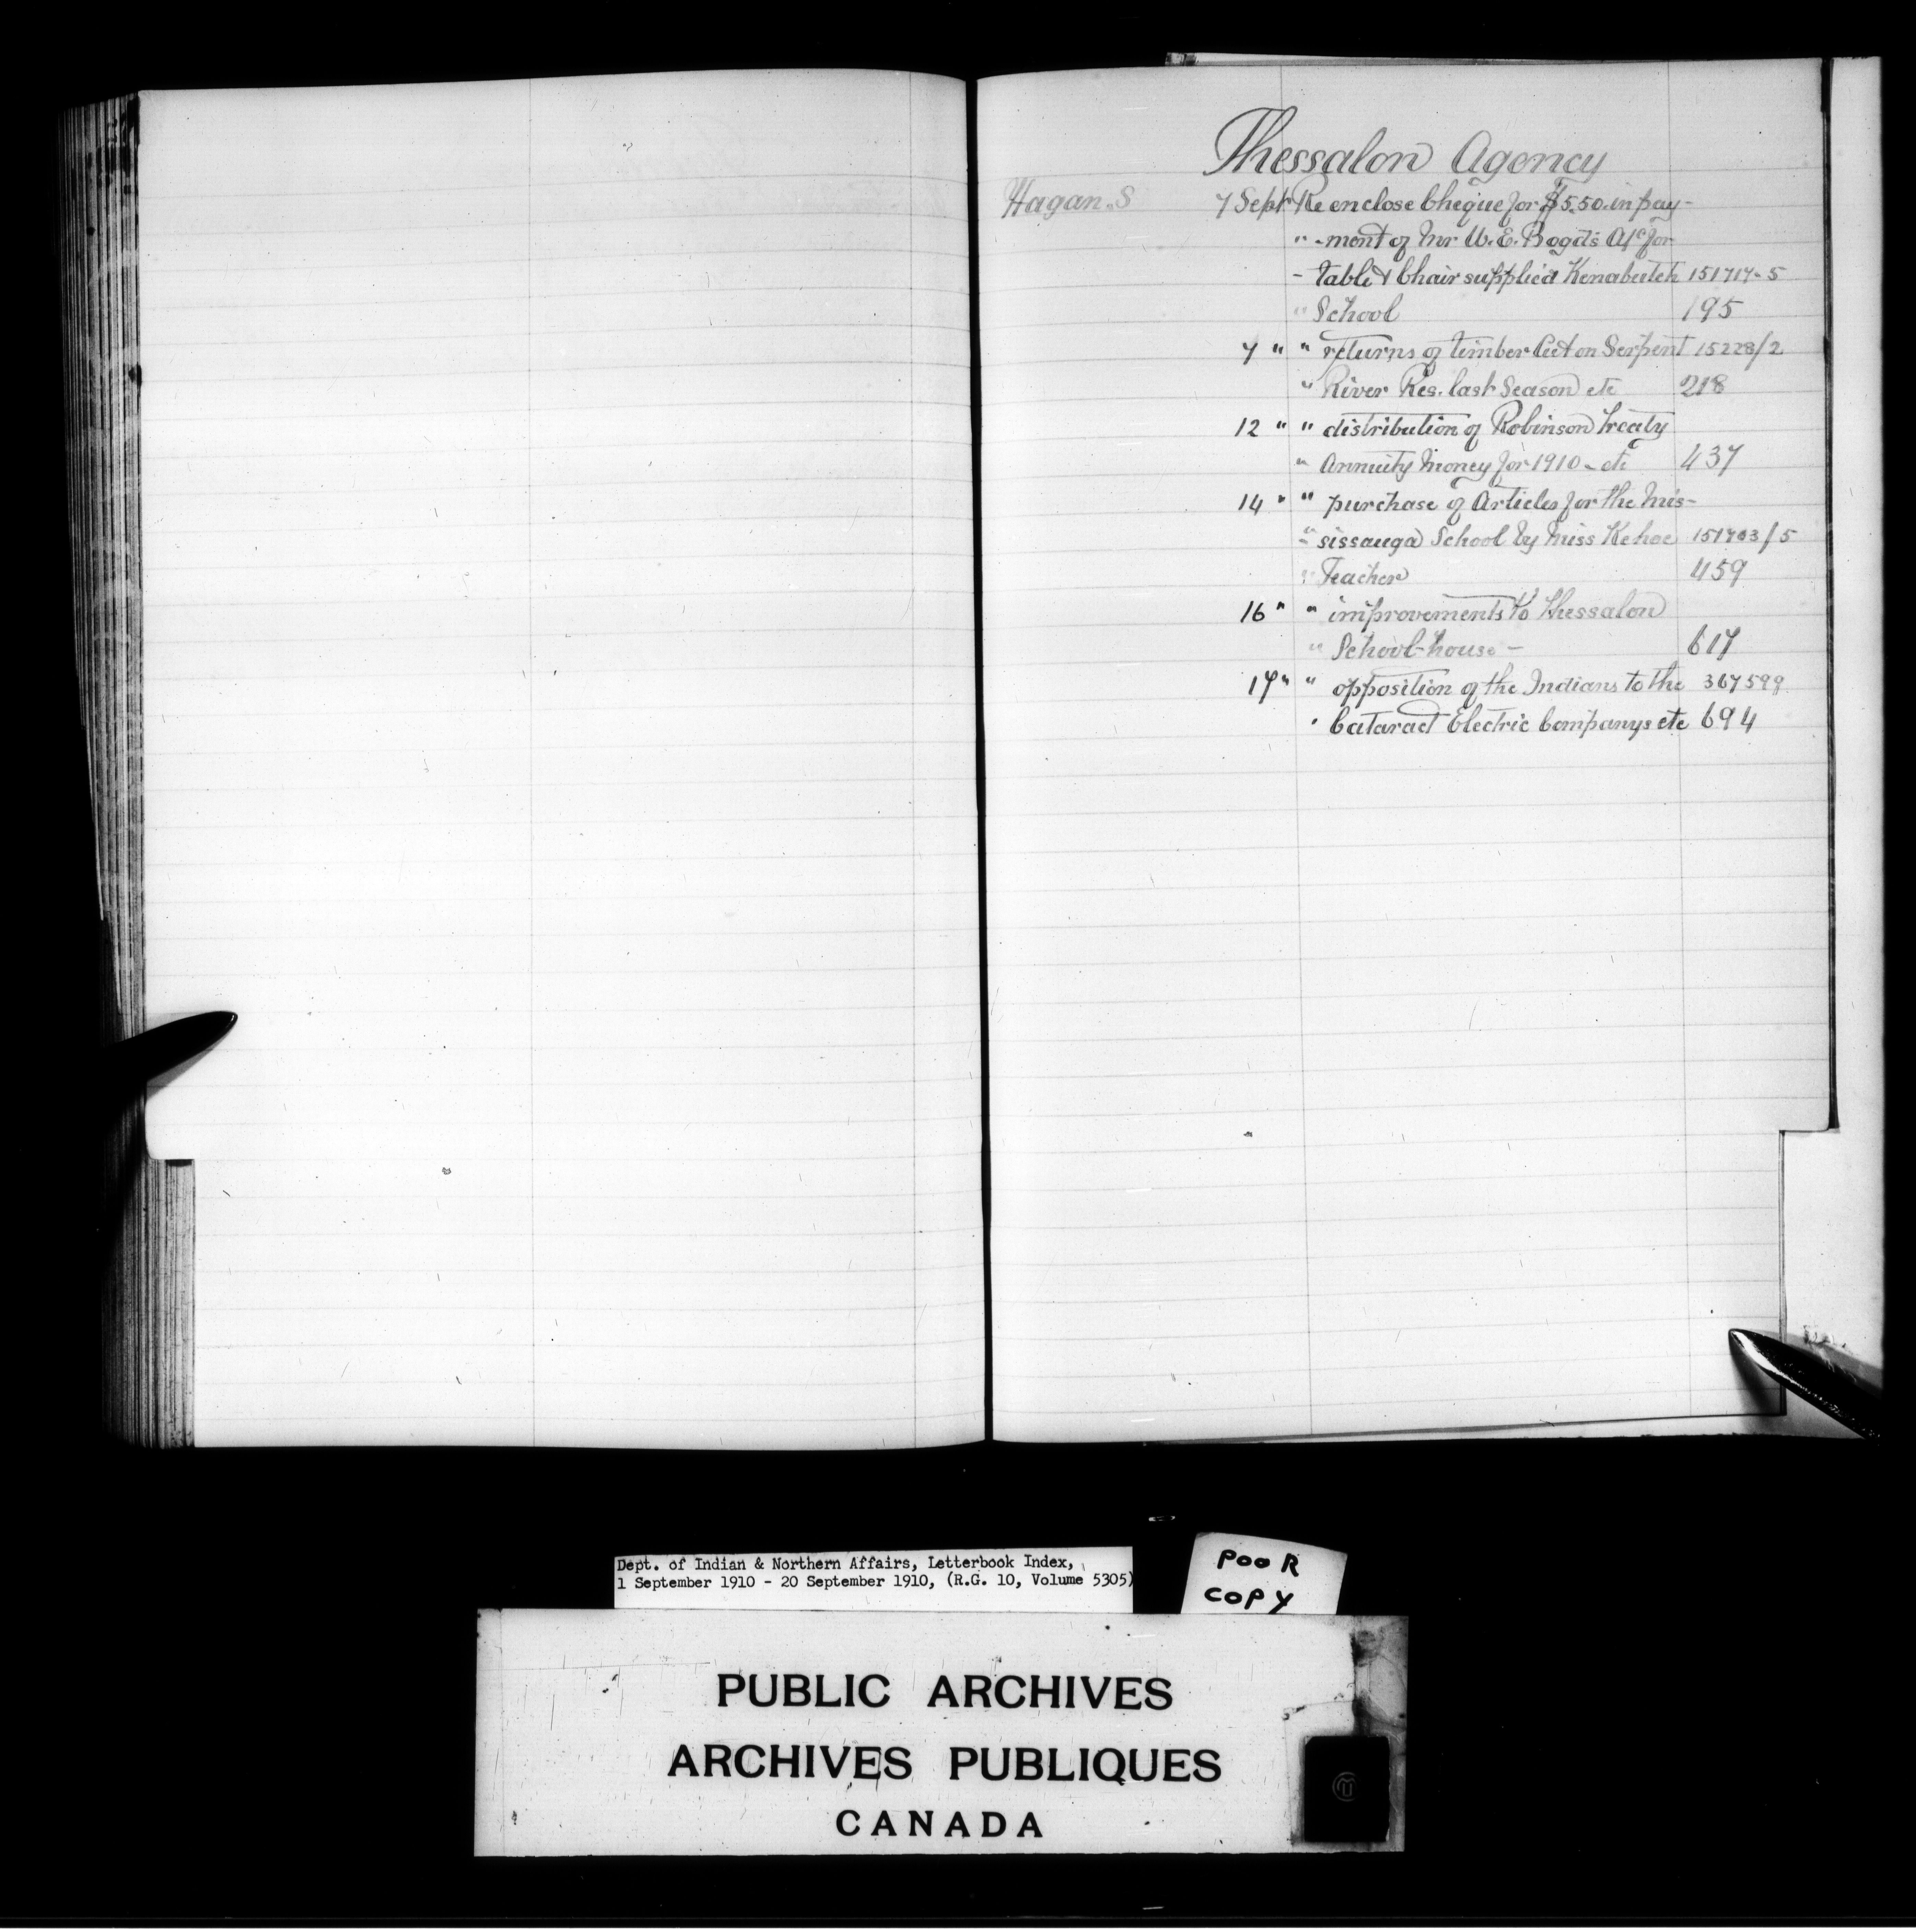 Thessalon Agency
Hagan. S 7 Sept Re enclose Cheque for $5.50. in pay-
" -ment of Mr W. E. Bogd's A/c for
- table & Chair supplied Kenabutch 151717-5
" School 195
7 " " returns of timber Cut on Serpent 15228/2
" River Res. last Season etc 218
12 " " distribution of Robinson Treaty
" Annuity Money for 1910 - etc 437
14 " " purchase of Articles for the Mis-
" sissauga School by Miss Kehoe 151703/5
" Teacher 459
16 " " improvements to Thessalon
" School-house - 617
17 " " opposition of the Indians to the 367598
" Cataract Electric Companys etc 694
Dept. of Indian & Northern Affairs, Letterbook Index,
1 September 1910 - 20 September 1910, (R.G. 10, Volume 5305)
POOR
COPY
PUBLIC ARCHIVES
ARCHIVES PUBLIQUES
CANADA